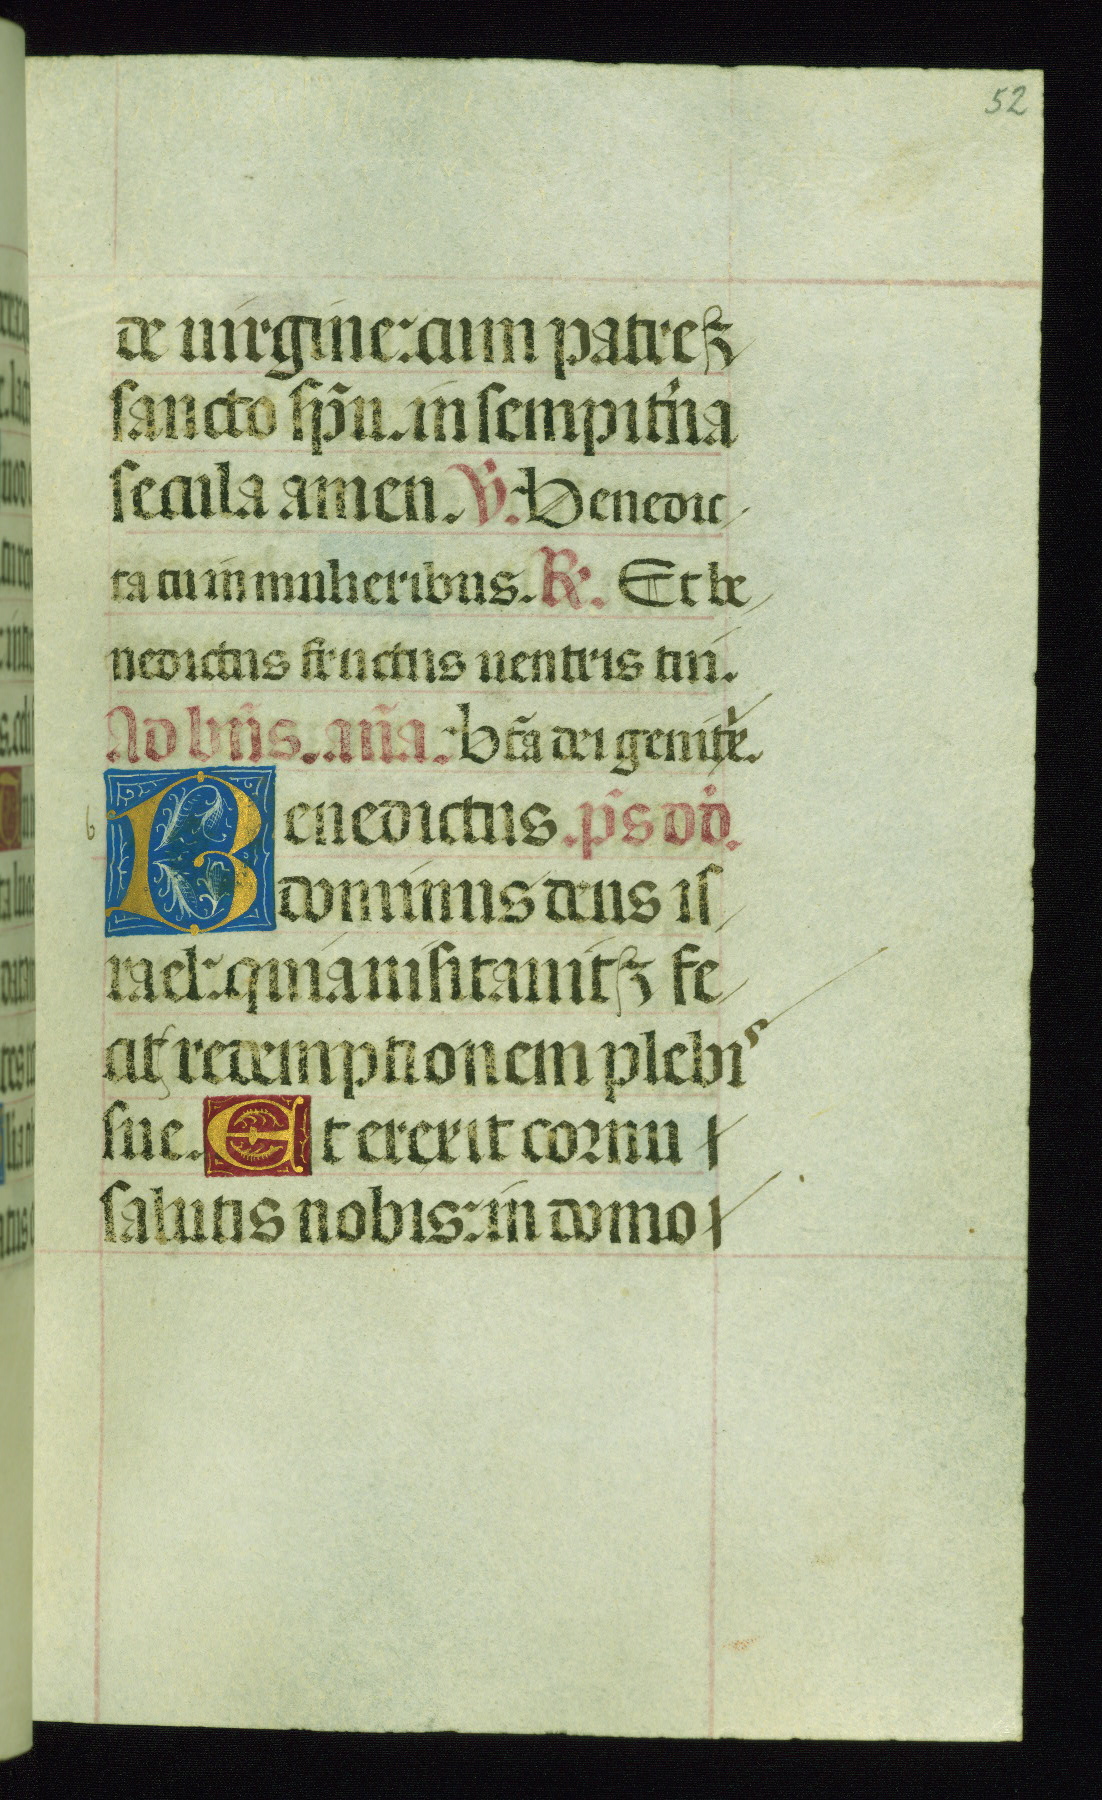 52
de uirgine: cum patre ⁊
sancto sp̄u. in sempit̉na
secula amen. V̉. Benedic
ta tu in mulieribus. R̉. Et be
nedictus fructus uentris tui.
Ad bn̄s. an̄a. Bt̄a dei genitⁱx.
b
Benedictus. ps̄ dd̄.
dominus deus is
rael: quia uisitauit ⁊ fe
cit redemptionem plebis
sue. Et erexit cornu
salutis nobis: in domo